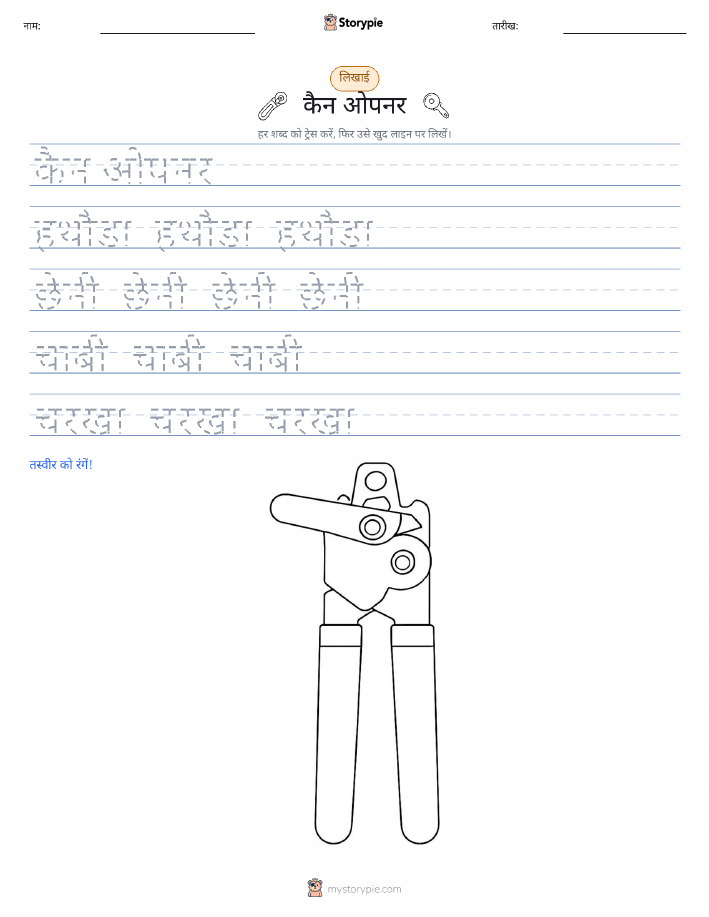 नाम:
Storypie
तारीख:
लिखाई
कैन ओपनर
हर शब्द को ट्रेस करें, फिर उसे खुद लाइन पर लिखें।
कैन ओपनर
हथौडा हथौडा हथौडा
छेनी छेनी छेनी छेनी
चाबी चाबी चाबी
चरखा चरखा चरखा
तस्वीर को रंगें!
mystorypie.com